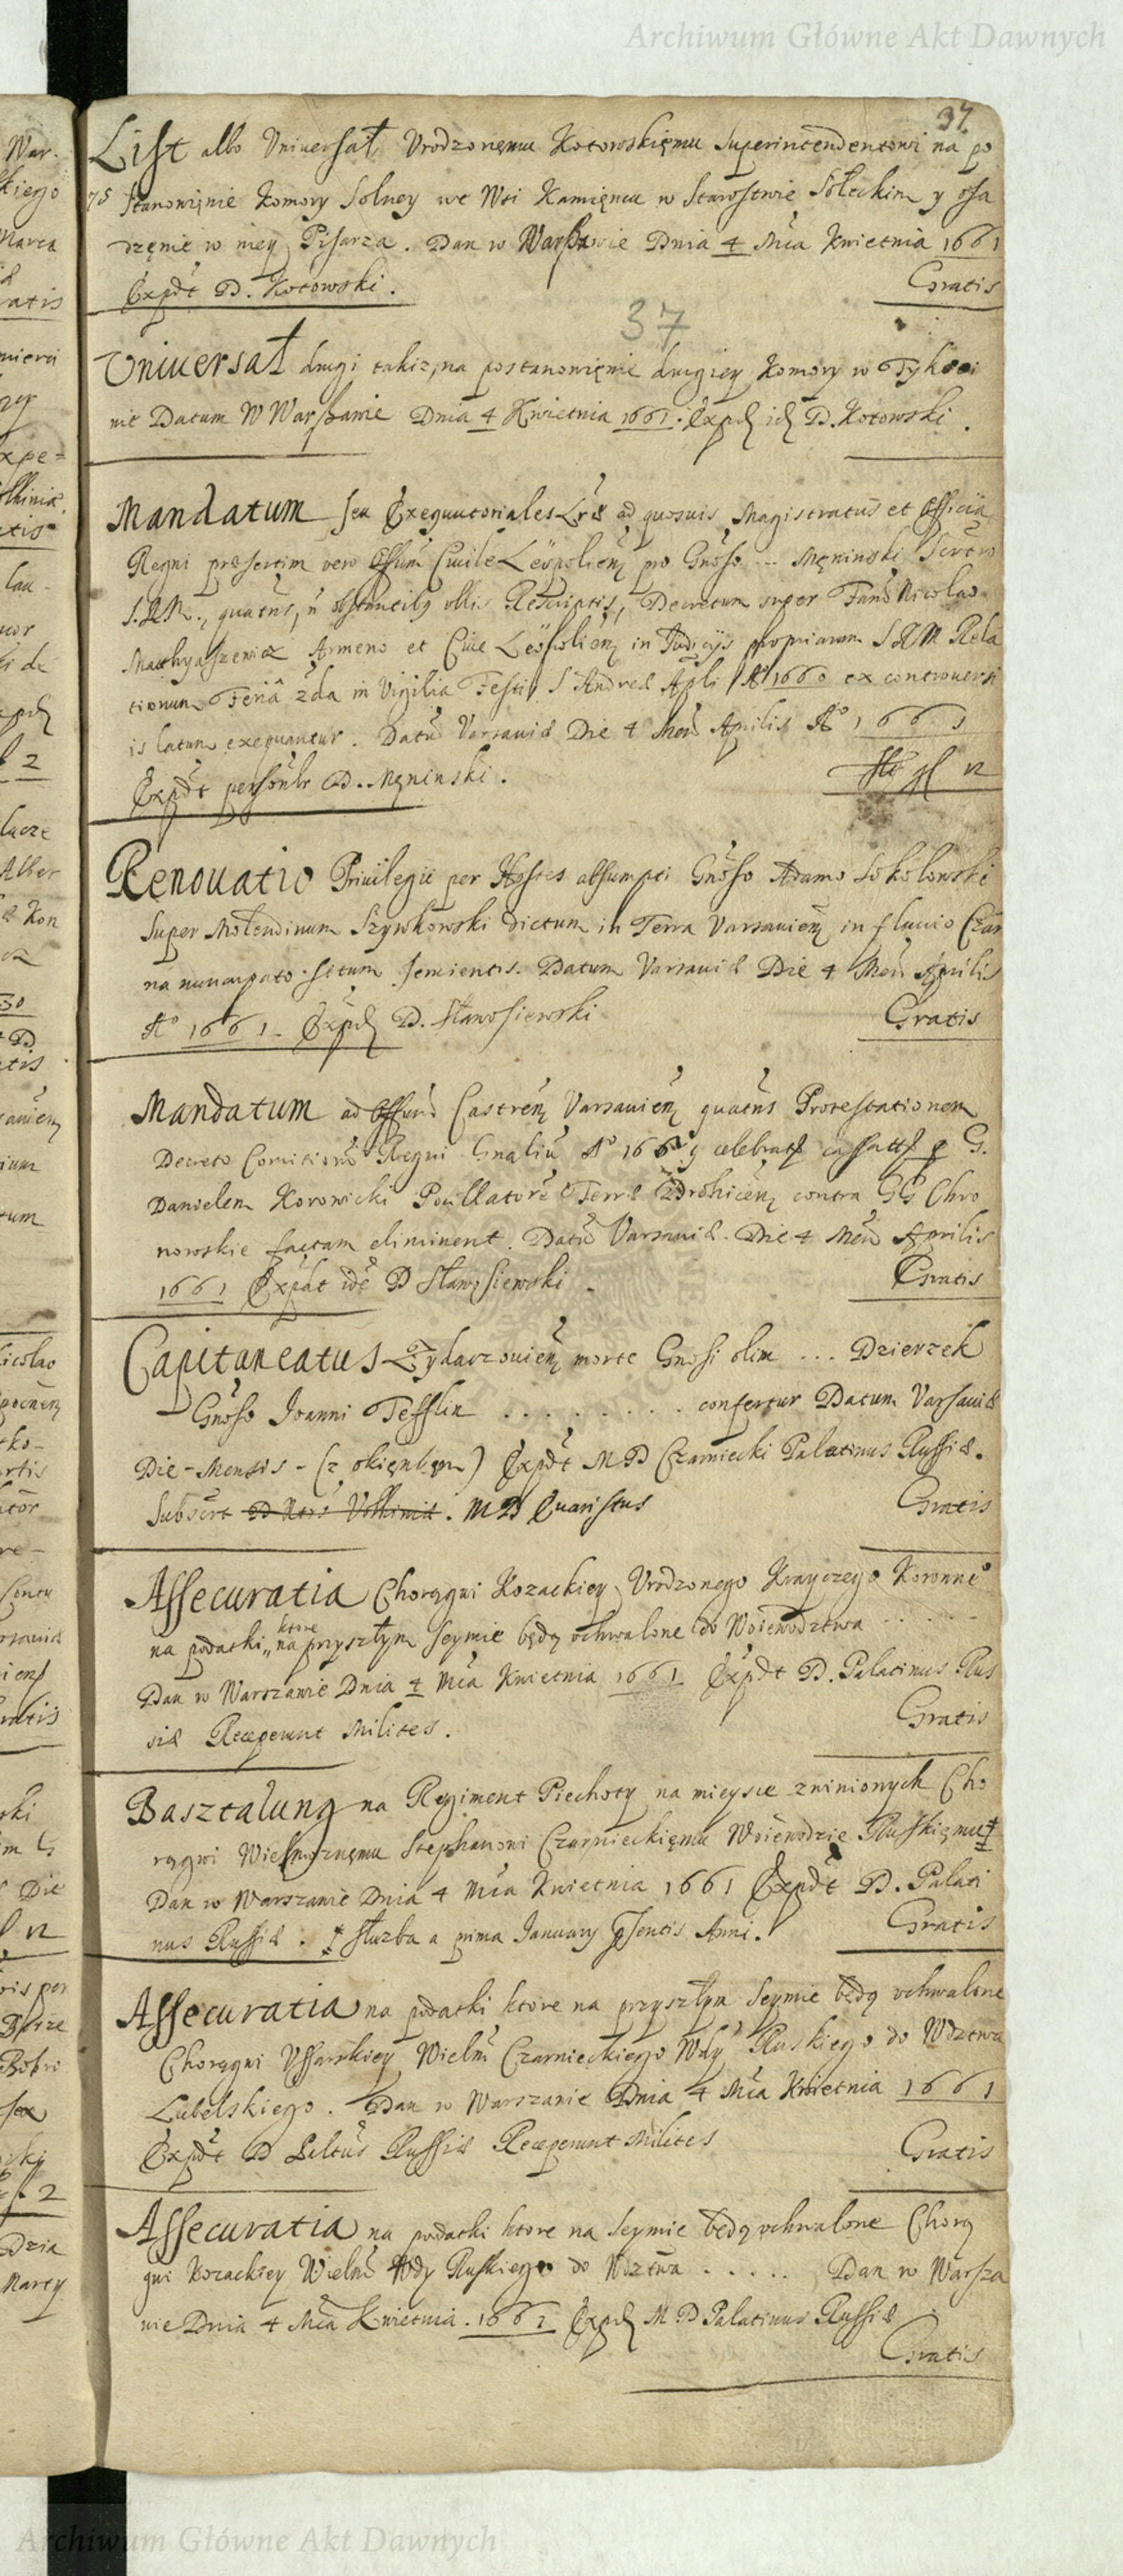 Archiwum Główne Akt Dawnych
37
List albo Uniuersał Vrodzonęmu Kotowskięmu Superintendentowi na po
stanowięnie Komory Solney we Wsi Kamięncu w Starostwie Soleckim y osa
dzęnie w niey Pisarza. Dan w Warszawie Dnia 4 Mca Kwietnia 1661
Expdt D. Kotowski. Gratis
37
Uniuersał drugi takiz, na postanowięnie drugiey Komory w Tykoci
nie Datum W Warszawie Dnia 4 Kwietnia 1661. Expd id D. Kotowski.
Mandatum seu Exequutoriales Lrae ad quosuis Magistratus et Officia
Regni praesertim vero Offum Ciuile Leopolien pro Gnoso ... Męninski Secrtrio
S.R.M., quatus, n obstantibq ullis Rescriptis, Decretum super Fam Nicolao
Mathyaszewicz Armeno et Ciue Leopolien in Judicijs propriarum S R M Rela
tionum Feria 2da in Vigilia Festi S Andreae Apli A 1660 ex controuersi
is latum exequantur. Datu Varsauiae Die 4 Men Aprilis Ao 1661
Expdt personlr D. Męninski. fl 12
Renouatio Priuilegii per Hostes absumpti Gnoso Adamo Sokolowski
super Molendinum Szywkowski dictum in Terra Varsauien in fluuio Czar
na nuncupato situm seruientis. Datum Varsauiae Die 4 Men Aprilis
Ao 1661. Expd D. Sławosiewski Gratis
Mandatum ad Offum Castren Varsauien quatus Protestationem
Decreto Comitiorum Regni Gnaliu Ao 1661 celebrat cassatt p G.
Danielem Korowicki Pocillatore Terrae Drohicen contra GG Chro
nowskie factam eliminent. Datu Varsauiae. Die 4 Men Aprilis
1661 Expdt ide D Sławosiewski. Gratis
Capitaneatus Zydaczouien morte Gnosi olim ... Dzierzek
Gnoso Joanni Tefflin ......... confertur Datum Varsauiae
Die - Mensis - (z okięnkęm) Expdt M D Czarniecki Palatinus Russiae.
Subscrt D Nots Volhiniae. M D Euaristus Gratis
Assecuratia Chorągwi Kozackiey Vrodzonego Krayczego Koronne
na podatki, ktore na przyszłym Seymie będą vchwalone do Woiewodztwa ......
Dan w Warszawie Dnia 4 Mca Kwietnia 1661 Expdt D. Palatinus Rus
siae Receperunt Milites. Gratis
Basztalung na Regiment Piechoty na mieysce zwinionych Cho
rągwi Wielmoznęmu Stephanowi Czarnieckięmu Woiewodzie Ruskięmu ‡
Dan w Warszawie Dnia 4 Mca Kwietnia 1661 Expdt D. Palati
nus Russiae. ‡ Służba a prima January psentis Anni. Gratis
Assecuratia na podatki ktore na przyszłym Seymie będą vchwalone
Chorągwi Vssarskiey Wielm Czarnieckiego Wdy Ruskiego do Wdztwa
Lubelskiego. Dan w Warszawie Dnia 4 Mca Kwietnia 1661
Expdt D Paltus Russiae Receperunt Milites Gratis
Assecuratia na podatki ktore na Seymie będą vchwalone Chorą
gwi Kozackiey Wielm Wdy Ruskiego do Wdztwa ..... Dan w Warsza
wie Dnia 4 Mca Kwietnia. 1661 Expd M D Palatinus Russiae
Gratis
Archiwum Główne Akt Dawnych